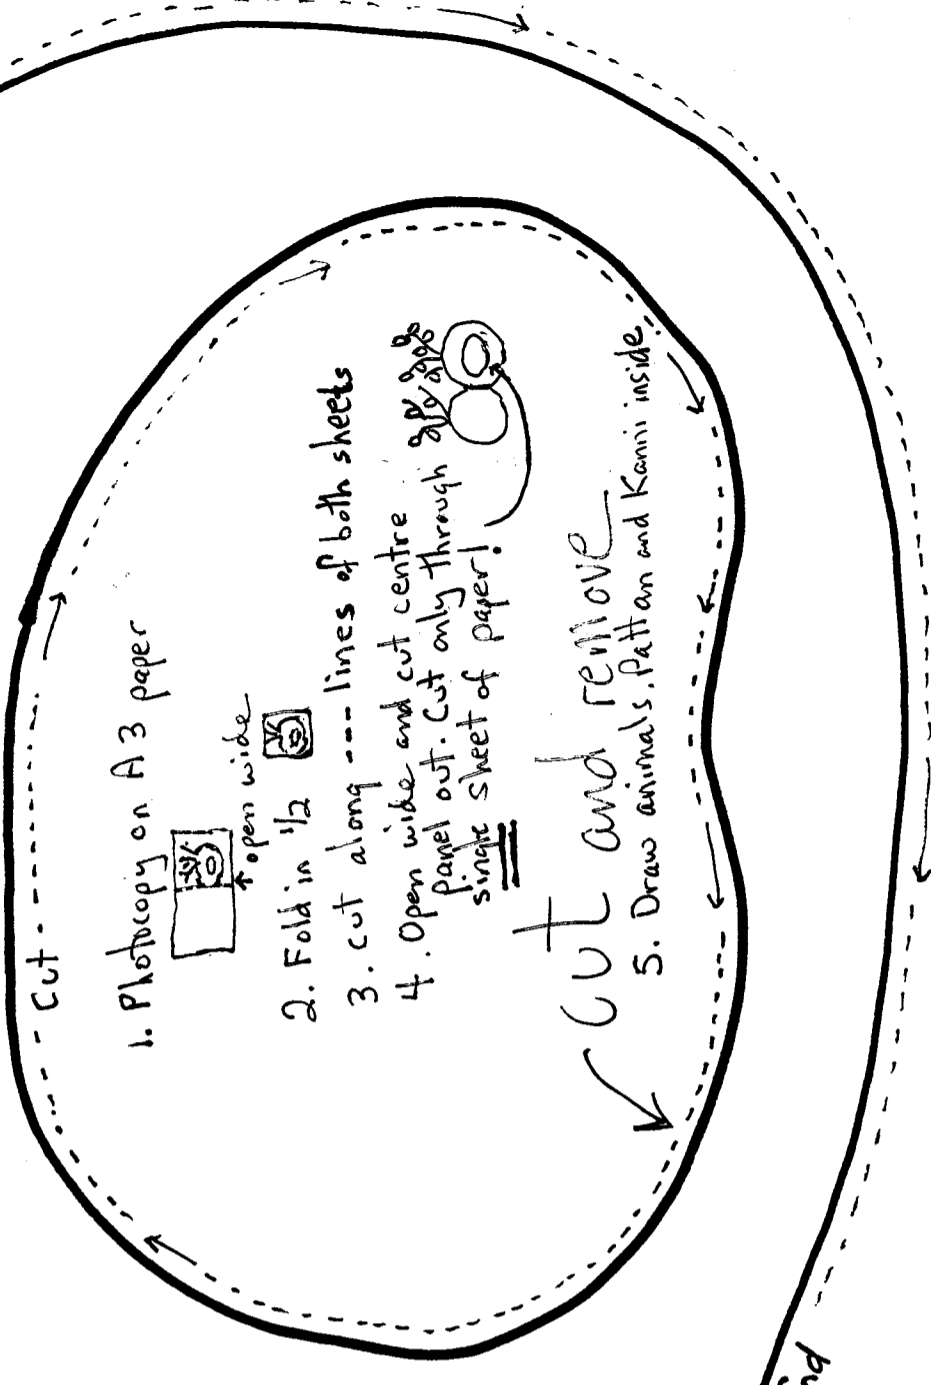 Cut
1. Photocopy on A3 paper
open wide
2. Fold in 1/2
3. cut along ---- lines of both sheets
4. Open wide and cut centre
Panel out. Cut only through
single sheet of paper!
cut and remove
5. Draw animals, Pattan and Kanni inside.